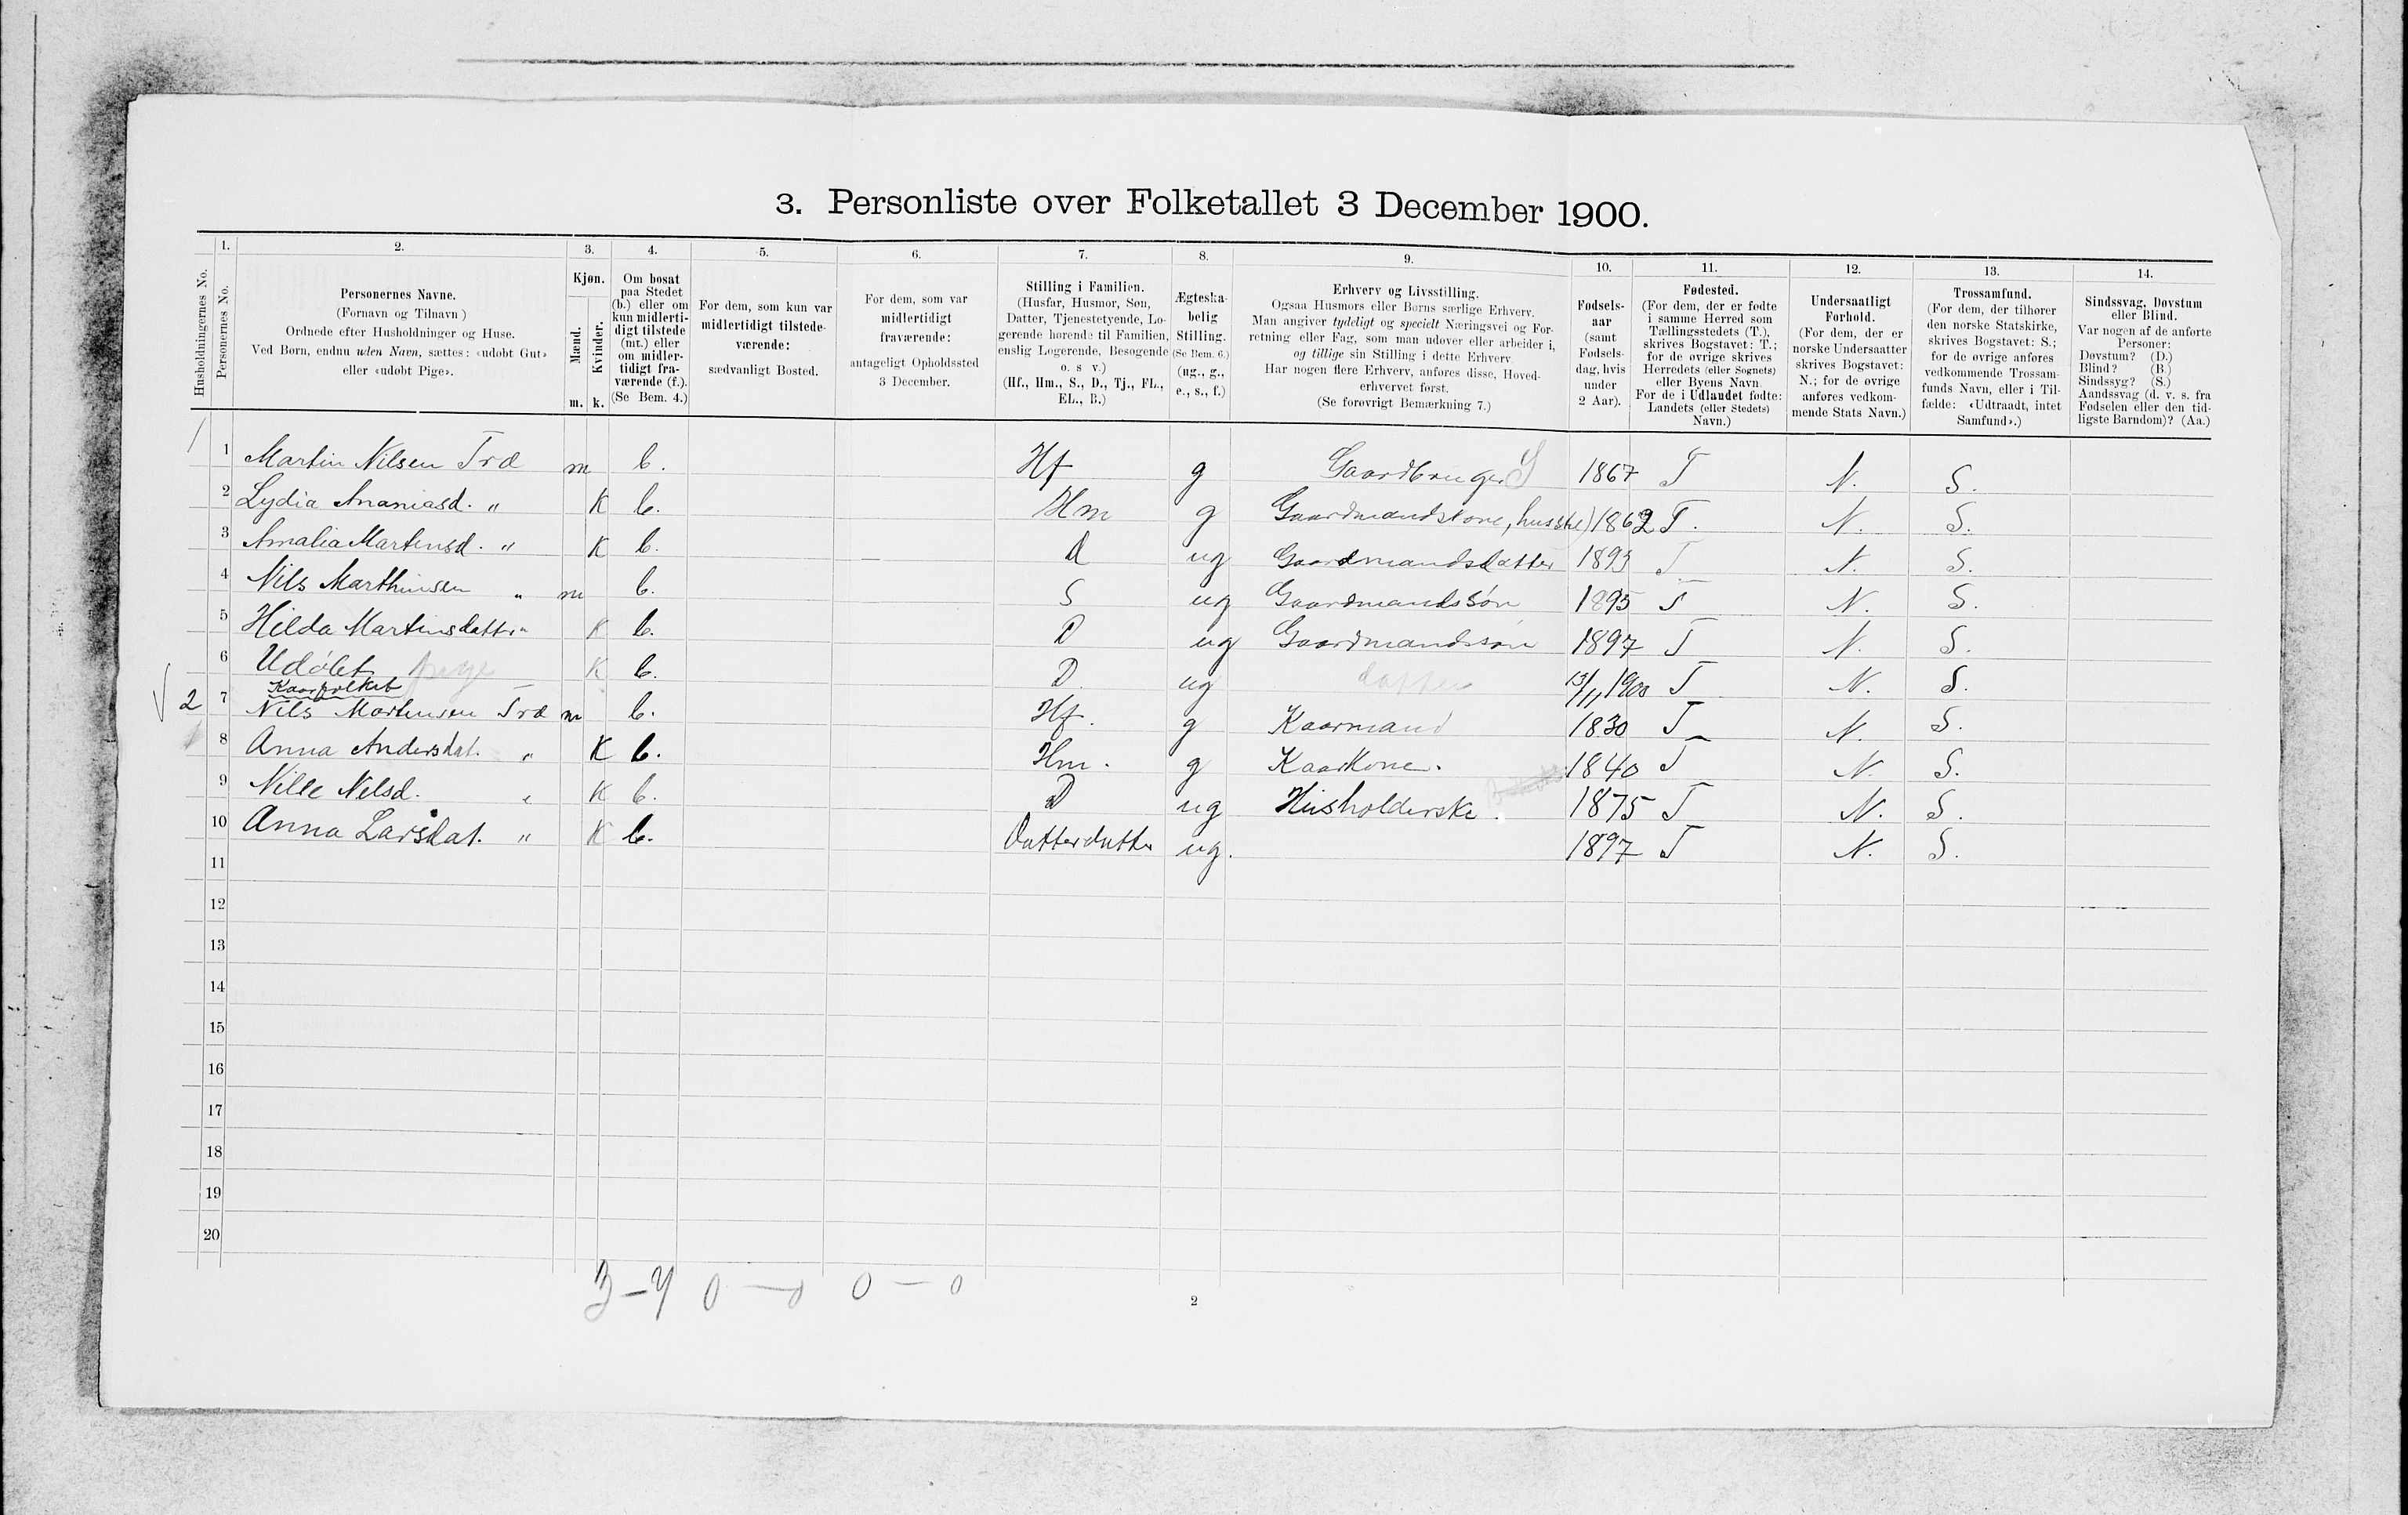 3. Personliste over Folketallet 3 December 1900.
1. 2. 3. 4. 5. 6. 7. 8. 9. 10. 11. 12. 13. 14.
Husholdningernes No.
Personernes No.
Personernes Navne.
(Fornavn og Tilnavn)
Ordnede efter Husholdninger og Huse.
Ved Børn, endnu uden Navn, sættes: «udøbt Gut»
eller «udøbt Pige».
Kjøn.
Mænd.
Kvinder.
m. k.
Om bosat
paa Stedet
(b.) eller om
kun midlerti-
digt tilstede
(mt.) eller
om midler-
tidigt fra-
værende (f.).
(Se Bem. 4.)
For dem, som kun var
midlertidigt tilstede-
værende:
sædvanligt Bosted.
For dem, som var
midlertidigt
fraværende:
antageligt Opholdssted
3 December.
Stilling i Familien.
(Husfar, Husmor, Søn,
Datter, Tjenestetyende, Lo-
gerende hørende til Familien,
enslig Logerende, Besøgende
o. s v.)
(Hf., Hm., S., D., Tj., FL.,
EL., B.)
Ægteska-
belig
Stilling.
(Se Bem. 6.)
(ug., g.,
e., s., f.)
Erhverv og Livsstilling.
Ogsaa Husmors eller Børns særlige Erhverv.
Man angiver tydeligt og specielt Næringsvei og For-
retning eller Fag, som man udøver eller arbeider i,
og tillige sin Stilling i dette Erhverv.
Har nogen flere Erhverv, anføres disse, Hoved-
erhvervet først.
(Se forøvrigt Bemærkning 7.)
Fødsels-
aar
(samt
Fødsels-
dag, hvis
under
2 Aar).
Fødested.
(For dem, der er fødte
i samme Herred som
Tællingsstedets (T.),
skrives Bogstavet: T.;
for de øvrige skrives
Herredets (eller Sognets)
eller Byens Navn.
For de i Udlandet fødte:
Landets (eller Stedets)
Navn.)
Undersaatligt
Forhold.
(For dem, der er
norske Undersaatter
skrives Bogstavet:
N.; for de øvrige
anføres vedkom-
mende Stats Navn.)
Trossamfund.
(For dem, der tilhører
den norske Statskirke,
skrives Bogstavet: S.;
for de øvrige anføres
vedkommende Trossam-
funds Navn, eller i Til-
fælde: «Udtraadt, intet
Samfund».)
Sindssvag, Døvstum
eller Blind.
Var nogen af de anførte
Personer:
Døvstum? (D.)
Blind? (B.)
Sindssyg? (S.)
Aandssvag (d. v. s. fra
Fødselen eller den tid-
ligste Barndom)? (Aa.)
1 1 Martin Nilsen Træ m b. Hf g Gaardbruger S 1867 T N. S.
2 Lydia Ananiasd. " K b. Hm g Gaardmandskone, husstel) 1862 T. N. S.
3 Amalia Martinsd. " K b. D ug Gaardmandsdatter 1893 T N. S.
4 Nils Marthinsen " m b. S ug Gaardmandssøn 1895 T N. S.
5 Hilda Martinsdatter " K b. D ug Gaardmandssøn 1897 T N. S.
6 Udøbt pige K b. D ug datter 13/11 1900 T N. S.
Kaarfolket
2 7 Nils Martinsen Træ m b. Hf. g Kaarmand 1830 T N. S.
8 Anna Andersdat. " K b. Hm. g Kaarkone. 1840 T N. S.
9 Nille Nilsd. " K b. D ug Husholderske. 1875 T N. S.
10 Anna Larsdat. " K b. Datterdatter ug. 1897 T N. S.
11
12
13
14
15
16
17
18
19
20
3 – 7 0 – 0 0 – 0
2